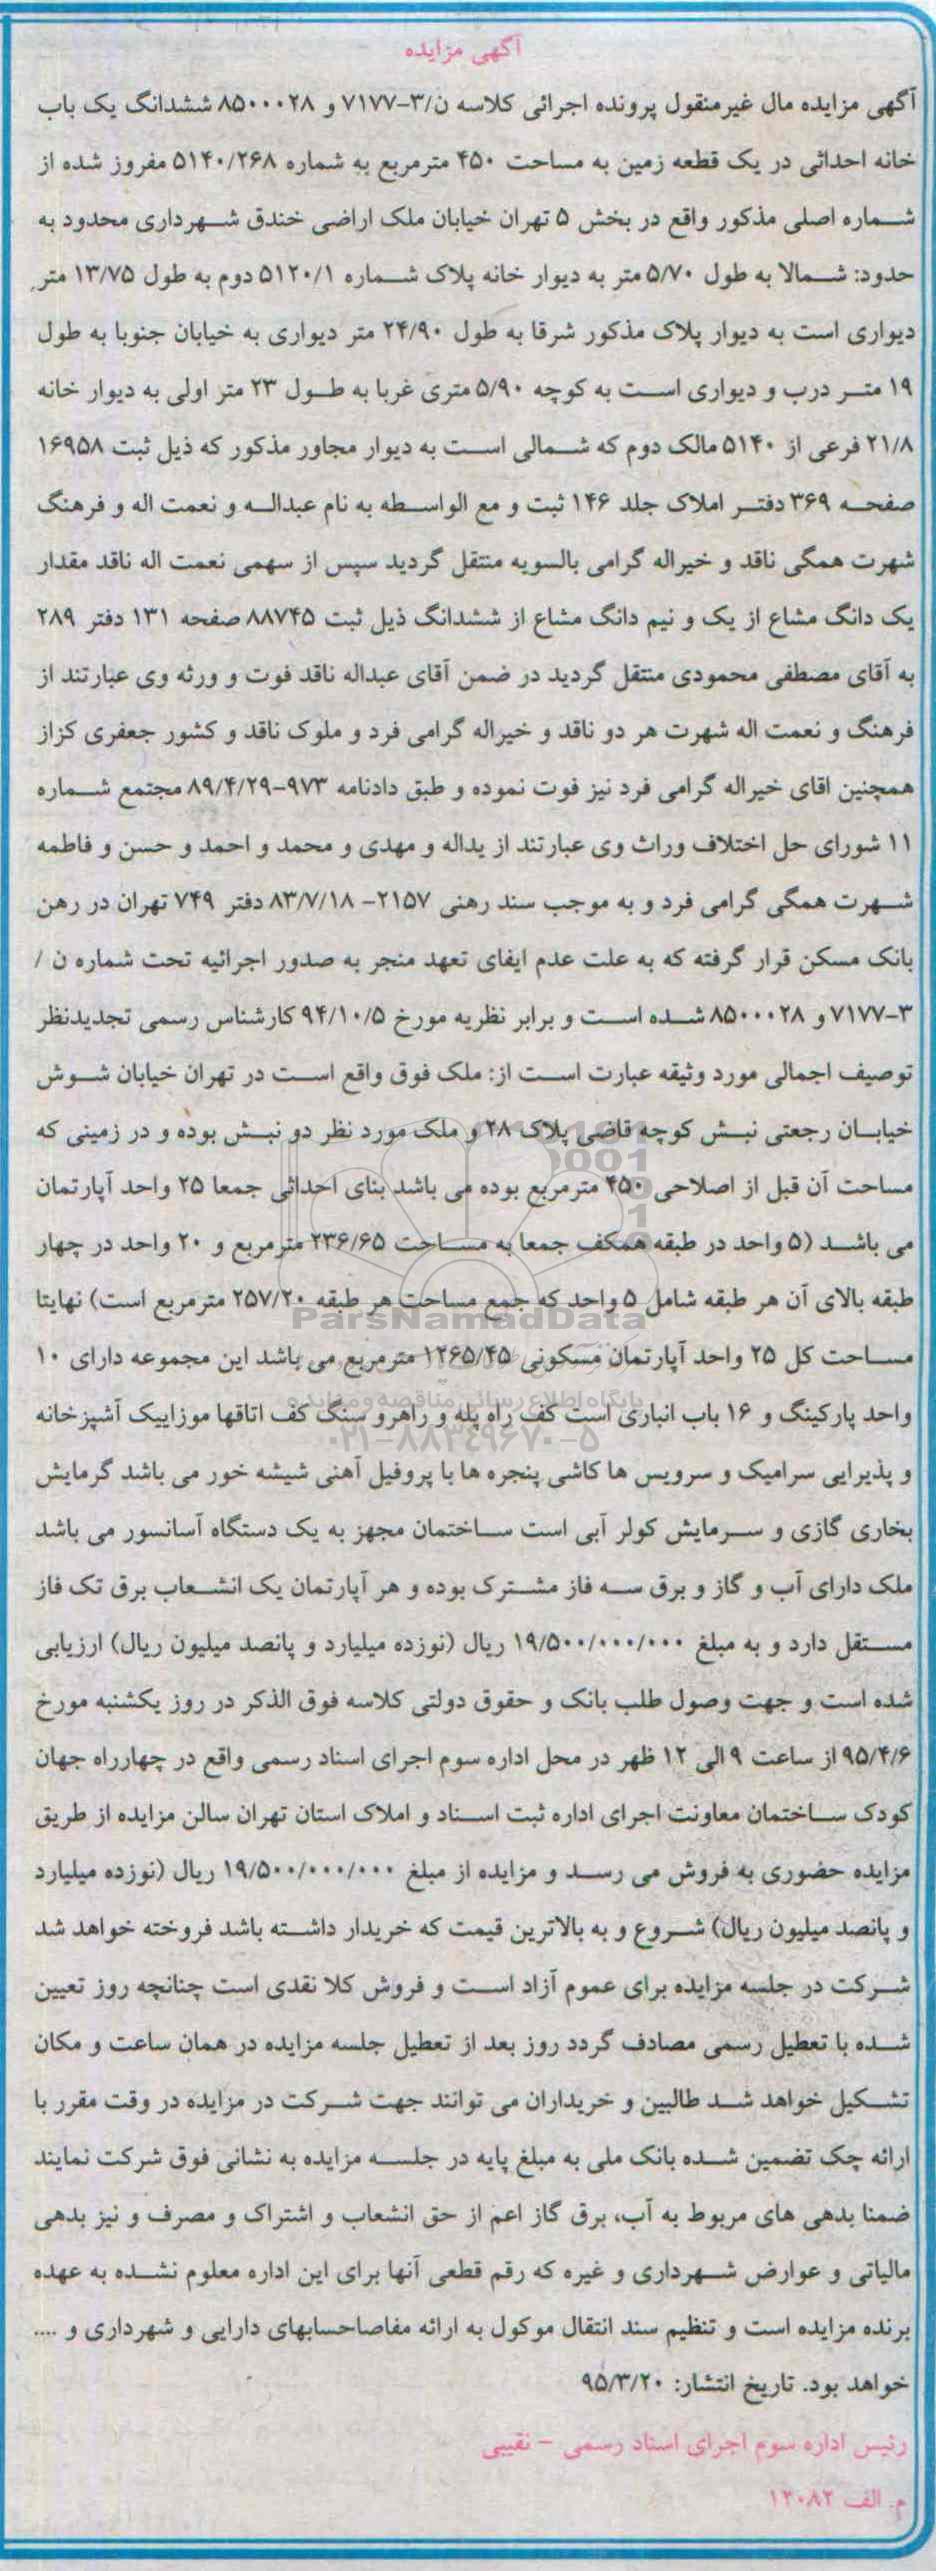 آگهی مزایده
آگهی مزایده مال غیرمنقول پرونده اجرائی کلاسه ن/۳-۷۱۷۷ و ۸۵۰۰۰۲۸ ششدانگ یک باب
خانه احداثی در یک قطعه زمین به مساحت ۴۵۰ مترمربع به شماره ۵۱۴۰/۲۶۸ مفروز شده از
شماره اصلی مذکور واقع در بخش ۵ تهران خیابان ملک اراضی خندق شهرداری محدود به
حدود: شمالا به طول ۵/۷۰ متر به دیوار خانه پلاک شماره ۵۱۲۰/۱ دوم به طول ۱۳/۷۵ متر
دیواری است به دیوار پلاک مذکور شرقا به طول ۲۴/۹۰ متر دیواری به خیابان جنوبا به طول
۱۹ متر درب و دیواری است به کوچه ۵/۹۰ متری غربا به طول ۲۳ متر اولی به دیوار خانه
۲۱/۸ فرعی از ۵۱۴۰ مالک دوم که شمالی است به دیوار مجاور مذکور که ذیل ثبت ۱۶۹۵۸
صفحه ۳۶۹ دفتر املاک جلد ۱۴۶ ثبت و مع الواسطه به نام عبداله و نعمت اله و فرهنگ
شهرت همگی ناقد و خیراله گرامی بالسویه منتقل گردید سپس از سهمی نعمت اله ناقد مقدار
یک دانگ مشاع از یک و نیم دانگ مشاع از ششدانگ ذیل ثبت ۸۸۷۴۵ صفحه ۱۳۱ دفتر ۲۸۹
به آقای مصطفی محمودی منتقل گردید در ضمن آقای عبداله ناقد فوت و ورثه وی عبارتند از
فرهنگ و نعمت اله شهرت هر دو ناقد و خیراله گرامی فرد و ملوک ناقد و کشور جعفری کزاز
همچنین اقای خیراله گرامی فرد نیز فوت نموده و طبق دادنامه ۹۷۳-۸۹/۴/۲۹ مجتمع شماره
۱۱ شورای حل اختلاف وراث وی عبارتند از یداله و مهدی و محمد و احمد و حسن و فاطمه
شهرت همگی گرامی فرد و به موجب سند رهنی ۲۱۵۷- ۸۳/۷/۱۸ دفتر ۷۴۹ تهران در رهن
بانک مسکن قرار گرفته که به علت عدم ایفای تعهد منجر به صدور اجرائیه تحت شماره ن /
۳-۷۱۷۷ و ۸۵۰۰۰۲۸ شده است و برابر نظریه مورخ ۹۴/۱۰/۵ کارشناس رسمی تجدیدنظر
توصیف اجمالی مورد وثیقه عبارت است از: ملک فوق واقع است در تهران خیابان شوش
خیابان رجعتی نبش کوچه قاضی پلاک ۲۸ و ملک مورد نظر دو نبش بوده و در زمینی که
مساحت آن قبل از اصلاحی ۴۵۰ مترمربع بوده می باشد بنای احداثی جمعا ۲۵ واحد آپارتمان
می باشد (۵ واحد در طبقه همکف جمعا به مساحت ۲۳۶/۶۵ مترمربع و ۲۰ واحد در چهار
طبقه بالای آن هر طبقه شامل ۵ واحد که جمع مساحت هر طبقه ۲۵۷/۲۰ مترمربع است) نهایتا
ParsNamadData
مساحت کل ۲۵ واحد آپارتمان مسکونی ۱۲۶۵/۴۵ مترمربع می باشد این مجموعه دارای ۱۰
پایگاه اطلاع رسانی مناقصه و مزایده
واحد پارکینگ و ۱۶ باب انباری است کف راه پله و راهرو سنگ کف اتاقها موزاییک آشپزخانه
۰۲۱-۸۸۳۴۹۶۷۰-۵
و پذیرایی سرامیک و سرویس ها کاشی پنجره ها با پروفیل آهنی شیشه خور می باشد گرمایش
بخاری گازی و سرمایش کولر آبی است ساختمان مجهز به یک دستگاه آسانسور می باشد
ملک دارای آب و گاز و برق سه فاز مشترک بوده و هر آپارتمان یک انشعاب برق تک فاز
مستقل دارد و به مبلغ ۱۹/۵۰۰/۰۰۰/۰۰۰ ریال (نوزده میلیارد و پانصد میلیون ریال) ارزیابی
شده است و جهت وصول طلب بانک و حقوق دولتی کلاسه فوق الذکر در روز یکشنبه مورخ
۹۵/۴/۶ از ساعت ۹ الی ۱۲ ظهر در محل اداره سوم اجرای اسناد رسمی واقع در چهارراه جهان
کودک ساختمان معاونت اجرای اداره ثبت اسناد و املاک استان تهران سالن مزایده از طریق
مزایده حضوری به فروش می رسد و مزایده از مبلغ ۱۹/۵۰۰/۰۰۰/۰۰۰ ریال (نوزده میلیارد
و پانصد میلیون ریال) شروع و به بالاترین قیمت که خریدار داشته باشد فروخته خواهد شد
شرکت در جلسه مزایده برای عموم آزاد است و فروش کلا نقدی است چنانچه روز تعیین
شده با تعطیل رسمی مصادف گردد روز بعد از تعطیل جلسه مزایده در همان ساعت و مکان
تشکیل خواهد شد طالبین و خریداران می توانند جهت شرکت در مزایده در وقت مقرر با
ارائه چک تضمین شده بانک ملی به مبلغ پایه در جلسه مزایده به نشانی فوق شرکت نمایند
ضمنا بدهی های مربوط به آب، برق گاز اعم از حق انشعاب و اشتراک و مصرف و نیز بدهی
مالیاتی و عوارض شهرداری و غیره که رقم قطعی آنها برای این اداره معلوم نشده به عهده
برنده مزایده است و تنظیم سند انتقال موکول به ارائه مفاصاحسابهای دارایی و شهرداری و ....
خواهد بود. تاریخ انتشار: ۹۵/۳/۲۰
رئیس اداره سوم اجرای اسناد رسمی - نقیبی
م. الف ۱۲۰۸۲